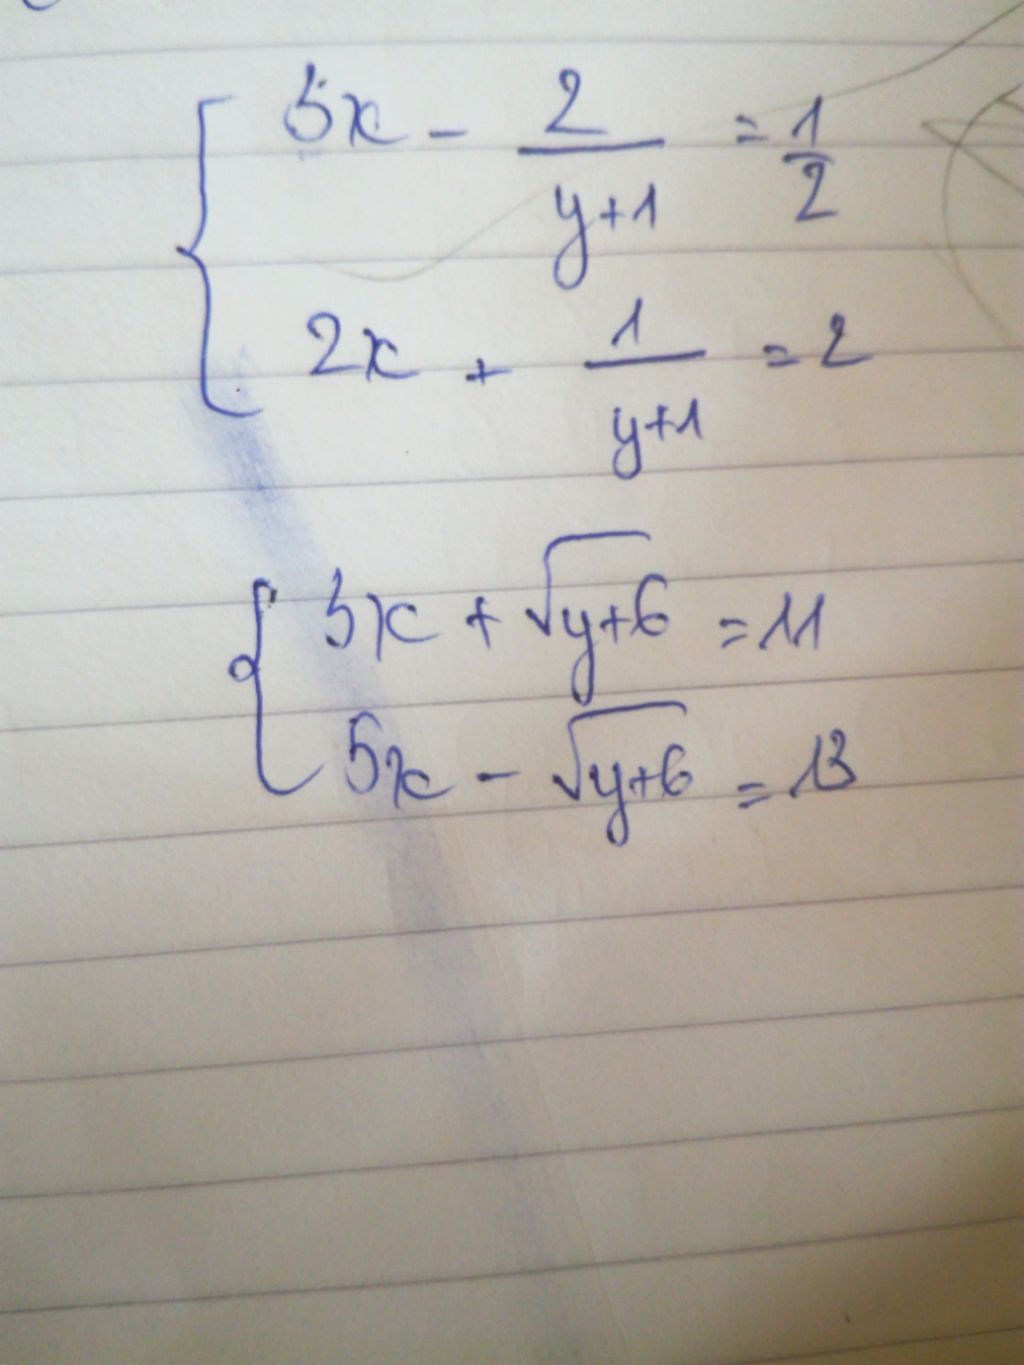 5x - 2/(y+1) = 1/2
2x + 1/(y+1) = 2
3x + √(y+6) = 11
5x - √(y+6) = 13